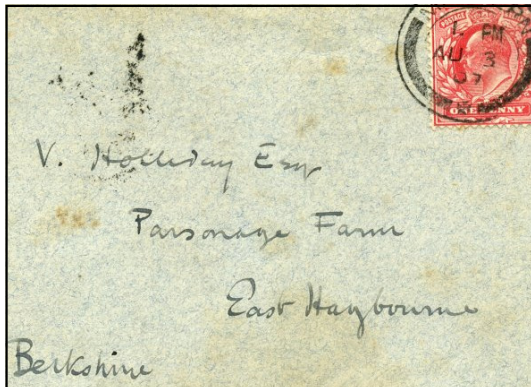 PM
AU 3
07
ONE PENNY
V. Holliday Esq
Parsonage Farm
East Haybourne
Berkshire